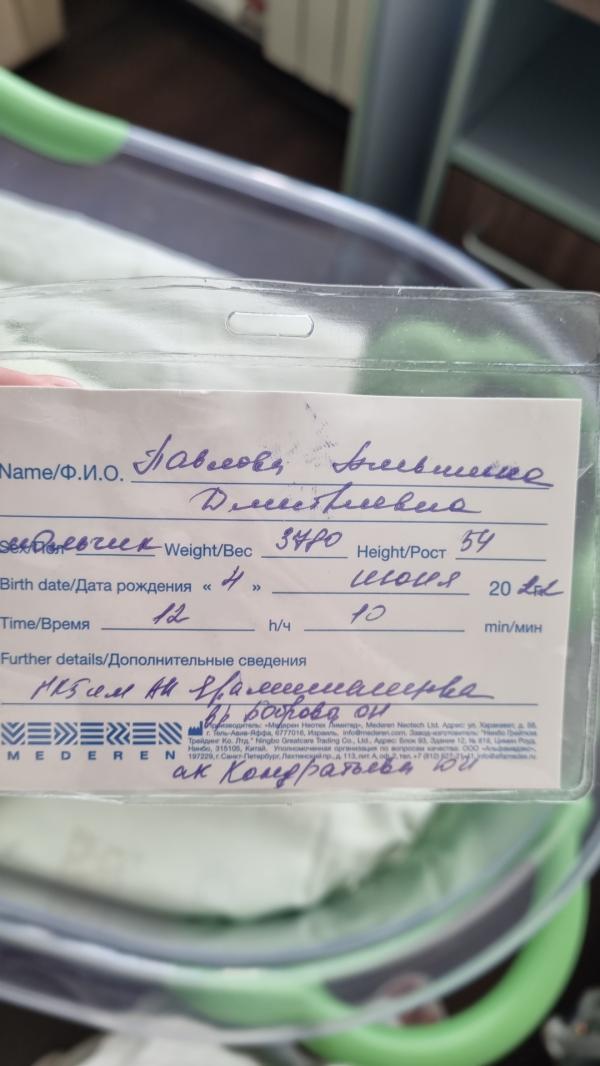 Name/Ф.И.О. Павлова
Дмитриевна
Sex/Пол мальчик Weight/Вес 3780 Height/Рост 54
Birth date/Дата рождения « 4 » июня 20 22
Time/Время 12 h/ч 10 min/мин
Further details/Дополнительные сведения
им
вр Боброва ОН
MEDEREN
Производитель: «Медерен Неотех Лимитед», Mederen Neotech Ltd. Адрес: ул.
г. Тель-Авив-Яффа, 6777016, Израиль, info@mederen.com. Завод-изготовитель: "Нингбо Грейткэа
Трейдинг Ко. Лтд." Ningbo Greatcare Trading Co., Ltd., Адрес: Блок 93, Здание 12, № 818,
315105, Китай. Уполномоченная организация по вопросам качества: ООО
197229, г.Санкт-Петербург, Лахтинский пр., д. 113, лит.
ак Кондратьева